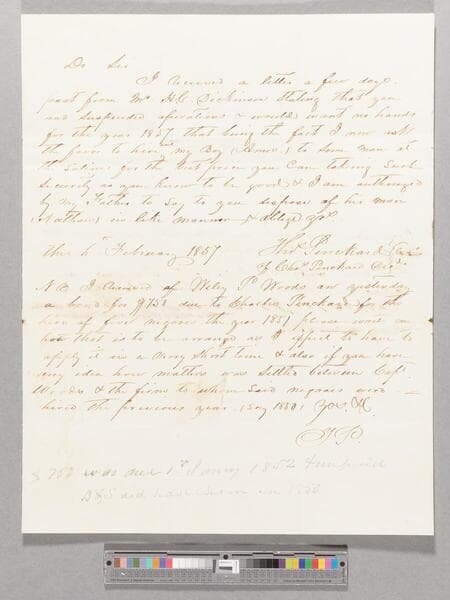 Dr Sir
I received a letter a few days
past from Mr H.C. Dickinson stating that you
had suspended operations & would want no hands
for the year 1857, that being the fact I now ask
the favor to hire my Boy () to some man at
the Salines for the best price you Can taking Such
Security as you know to be good, & I am authorized
by my Father to Say to you dispose of his man
(Nathan) in like manner & oblige yrs
this 4th February 1857 Thos Pinckard
of Chas Pinckard
N B I received of Wiley P Woods on yesterday
a bond for $750 due to Charles Pinckard for the
hire of five negroes the year 1851 please write me
how that is to be arranged as I expect to have to
apply it in a very Short time & also if you have
any idea how matters was Settled between Capt
Woods & the firm to whom Said negroes were
hired the previous year (Say 1850) yrs &c
T P
$ 750 was due 1st Jany 1852
in 1850